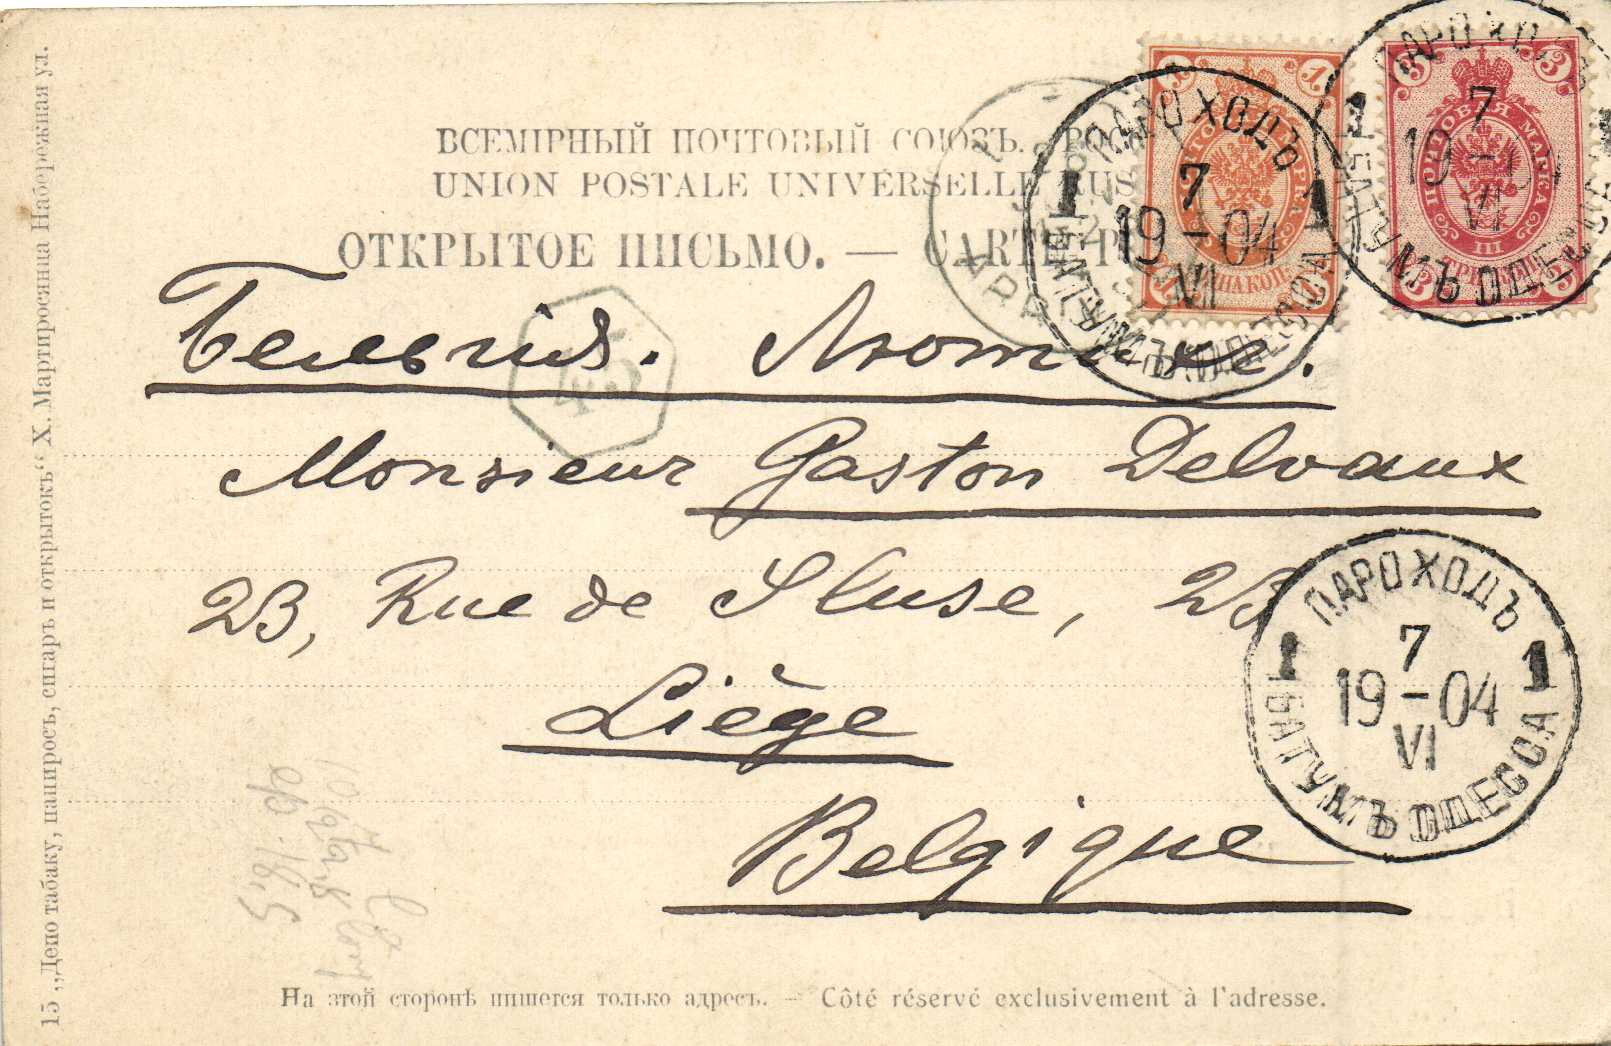 ВСЕМІРНЫЙ ПОЧТОВЫЙ СОЮЗЪ. РОС
UNION POSTALE UNIVERSELLE RUS
ОТКРЫТОЕ ПИСЬМО. — CARTE P
ПАРОХОДЪ
1 7 1
19-04
VI
БАТУМЪ ОДЕССА
ПОЧТОВАЯ МАРКА
III
ТРИ КОП.
3 3
ПАРОХОДЪ
1 7
19
VI
БАТУМЪ ОДЕССА
45
Бельгія. Люттихе.
Monsieur Gaston Delvaux
23, Rue de Sluse, 23
Liège
Belgique
ПАРОХОДЪ
1 7 1
19-04
VI
БАТУМЪ ОДЕССА
На этой сторонѣ пишется только адресъ. — Côté réservé exclusivement à l'adresse.
15 „Депо табаку, папиросъ, сигаръ и открытокъ“ Х. Мартиросянца Набережная ул.